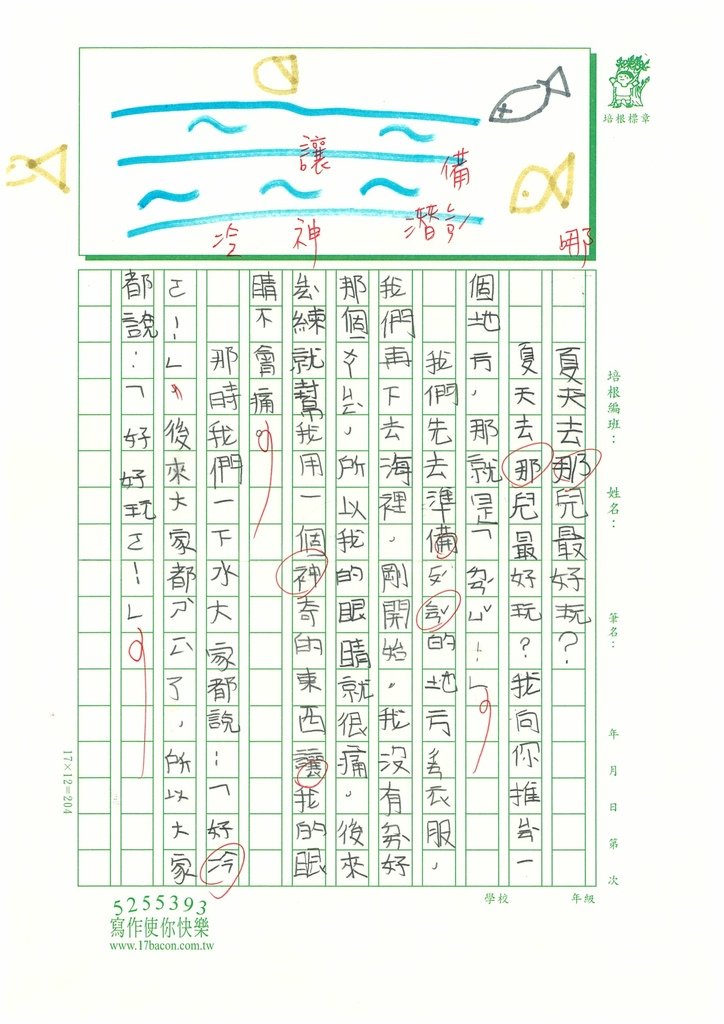 培根標章
讓
備
冷
神
潛
哪
培根編班：
姓名：
筆名：
年 月 日 第 次
夏天去那兒最好玩？
夏天去那兒最好玩？我向你推一
個地方，那就是「！」
我們先去準備的地方衣服，
我們再下去海裡。剛開始。我沒有好
那個，所以我的眼睛就很痛，後來
練就幫我用一個神奇的東西讓我的眼
睛不會痛。
那時我們一下水大家都說：「好冷
ㄛ！」後來大家都了，所以大家
都說：「好好玩ㄛ！」
17×12=204
學校
年級
5255393
寫作使你快樂
www.17bacon.com.tw